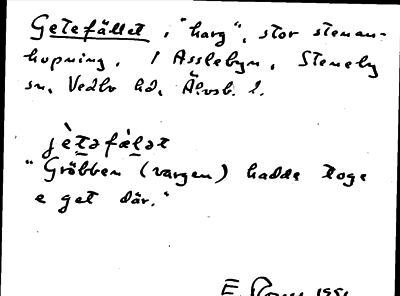 Getefället i "harg", stor stenan-
hopning. I Asslebyn, Steneby
sn, Vedbo hd, Älvsb. l.
jètəfàlət
"Gröbben (vargen) hadde toge
e get där."
E. 1991